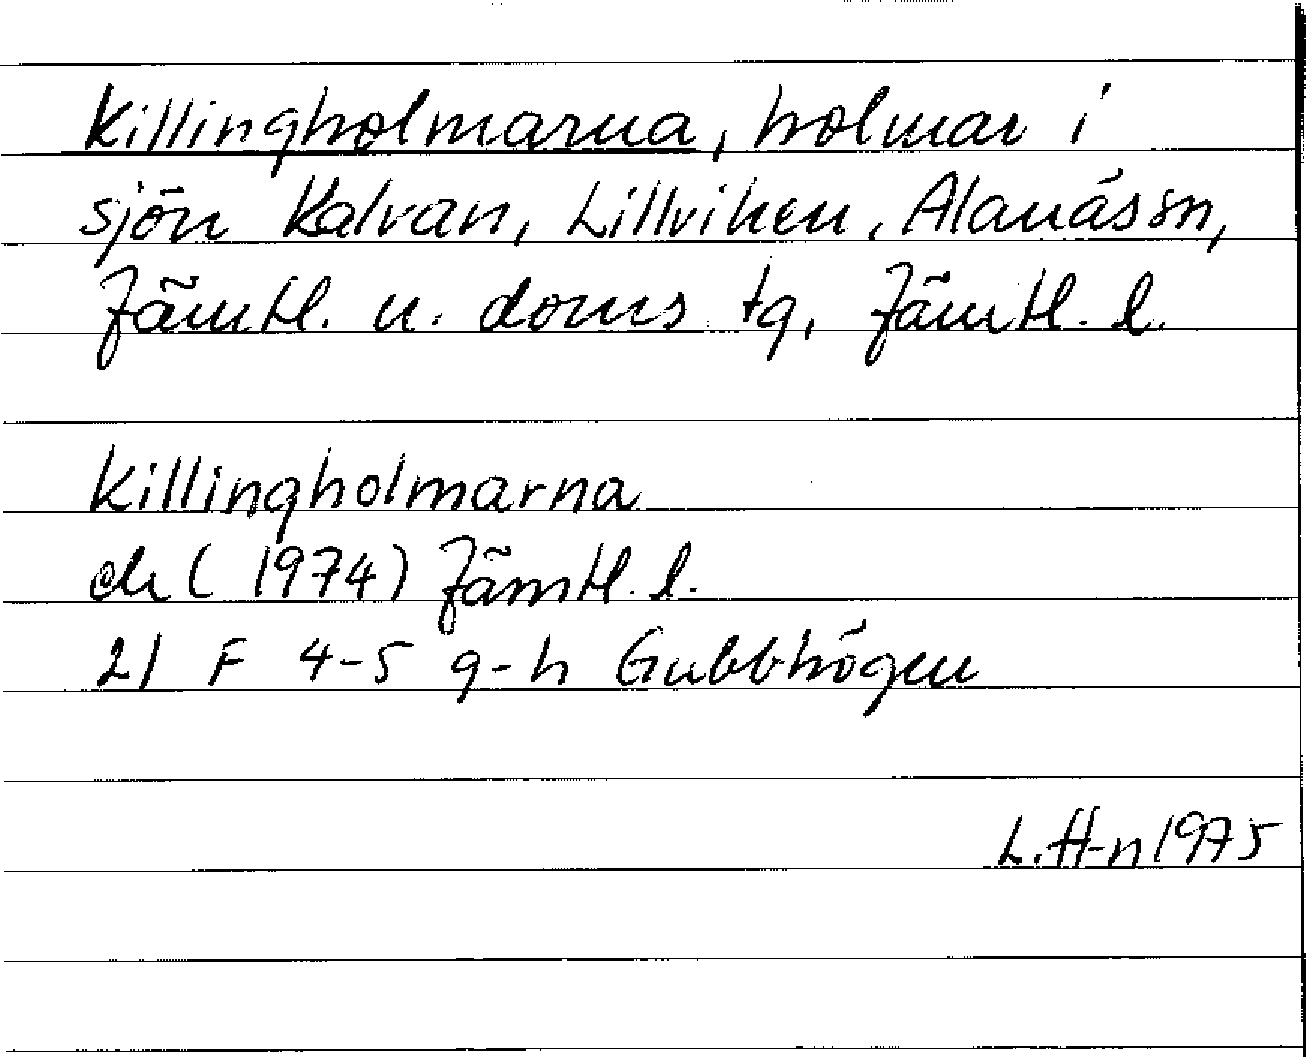 Killingholmarna, holmar i
sjön Kalvan, Lillviken, Alanäs sn,
Jämtl. n. doms. tg, Jämtl. l.
Killingholmarna
ek (1974) Jämtl. l.
21 F 4-5 g-h Gubbhögen
L. H-n 1975